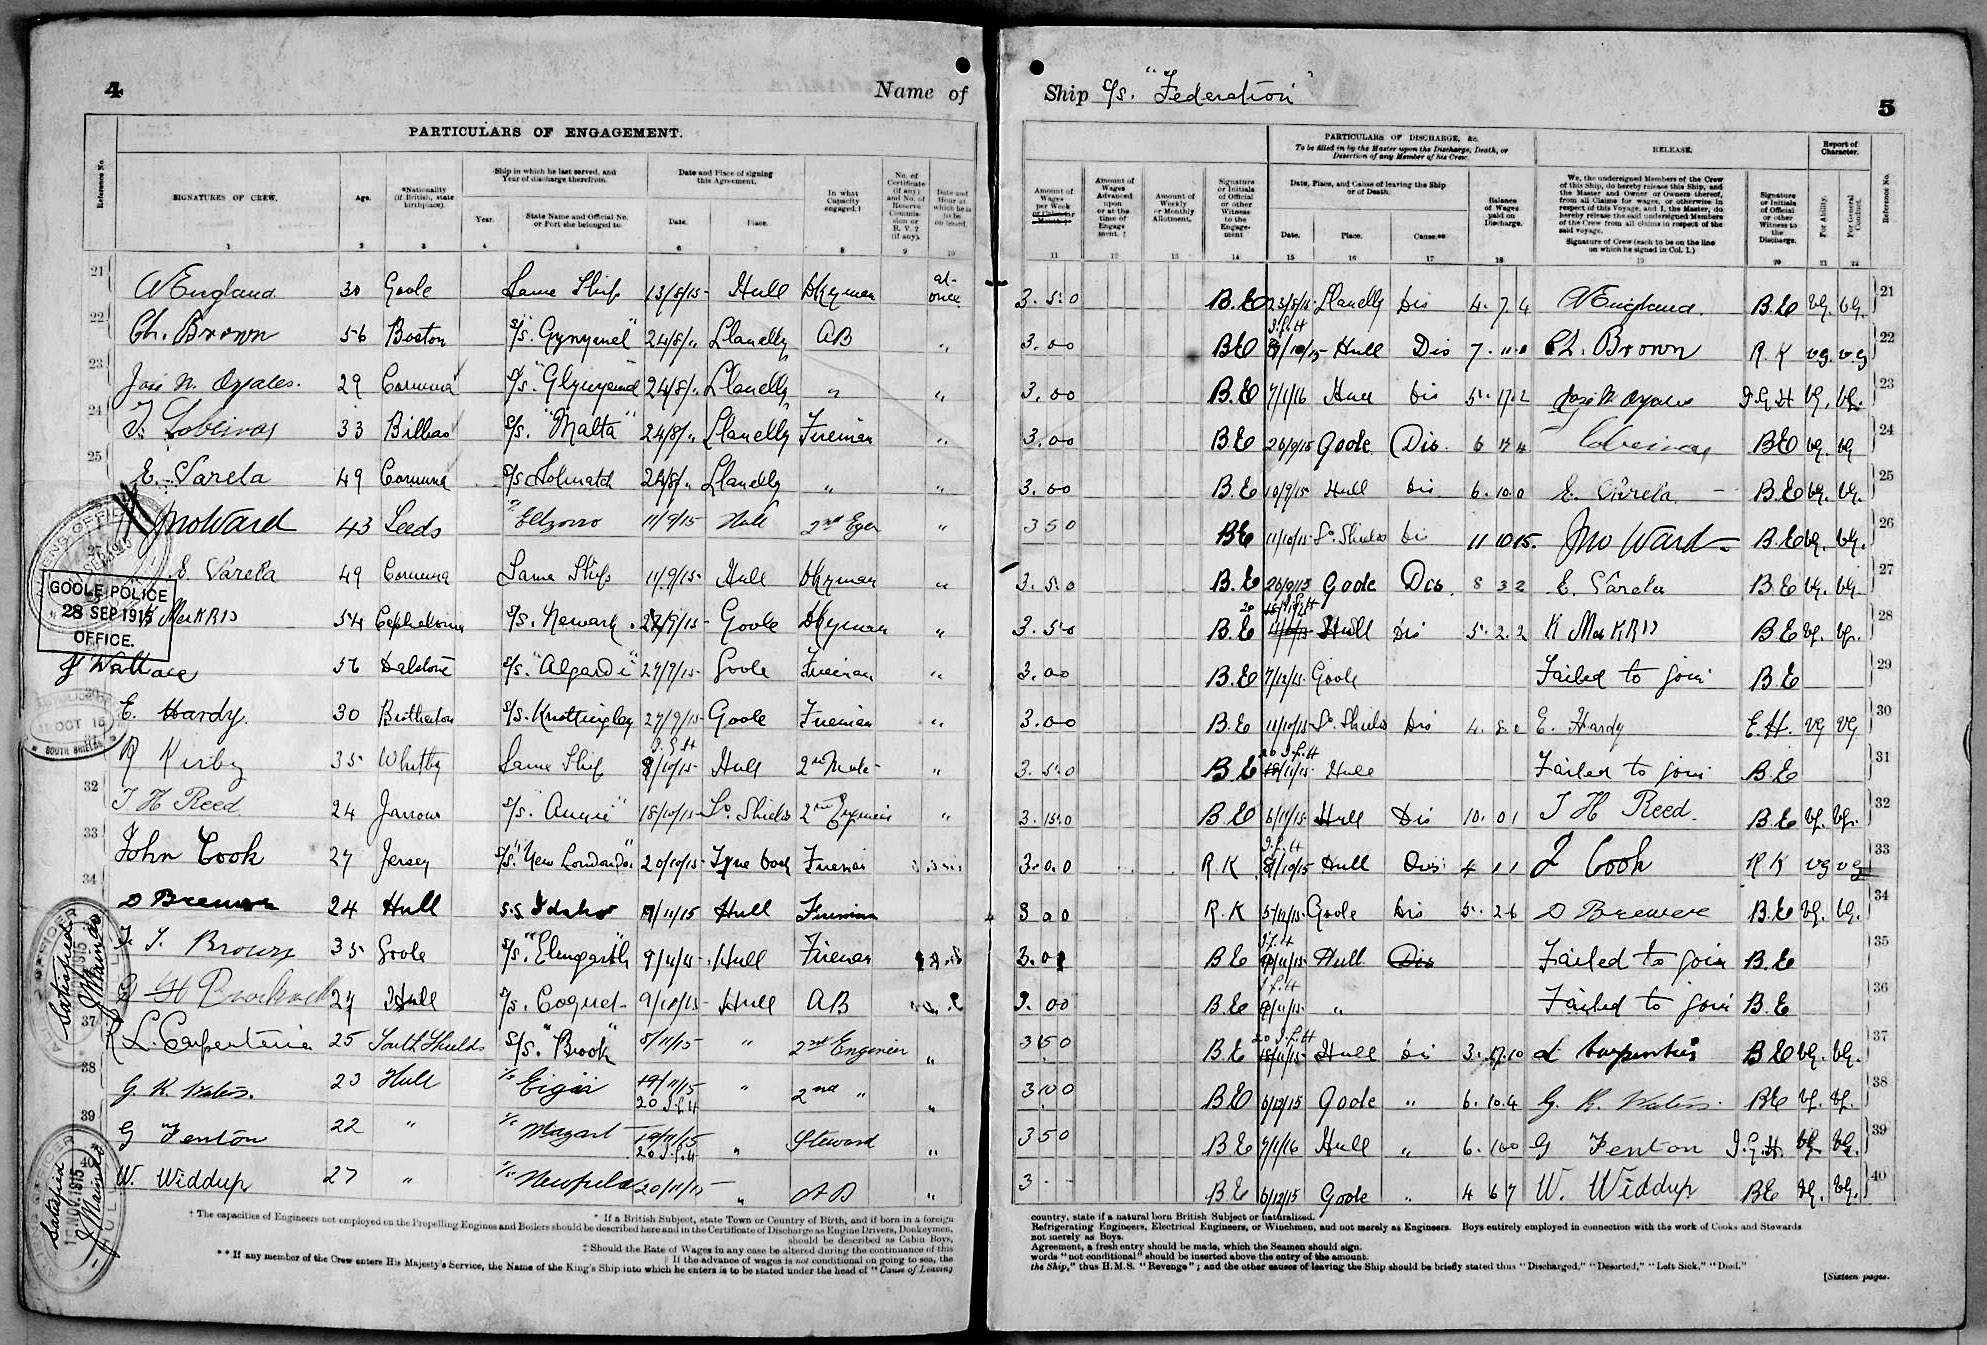 4
Name of
Ship S/S. "Federation"
5
PARTICULARS OF ENGAGEMENT.
Reference No.
SIGNATURES OF CREW.
Age.
*Nationality (if British, state birthplace).
Ship in which he last served, and Year of discharge therefrom.
Year.
State Name and Official No. or Port she belonged to.
Date and Place of signing this Agreement.
Date.
Place.
In what Capacity engaged.†
No. of Certificate (if any) and No. of Reserve Commission or R.V.2 (if any).
Date and Hour at which he is to be on board.
1 2 3 4 5 6 7 8 9 10
Amount of Wages per Week or Calendar Month ‡
Amount of Wages Advanced upon or at the time of Engagement. ‡
Amount of Weekly or Monthly Allotment.
Signature or Initials of Official or other Witness to the Engagement
PARTICULARS OF DISCHARGE, &c.
To be filled in by the Master upon the Discharge, Death, or Desertion of any Member of his Crew.
Date, Place, and Cause of leaving the Ship or of Death.
Date.
Place.
Cause.**
Balance of Wages paid on Discharge.
RELEASE.
We, the undersigned Members of the Crew of this Ship, do hereby release this Ship, and the Master and Owner or Owners thereof, from all Claims for wages, or otherwise in respect of this Voyage, and I, the Master, do hereby release the said undersigned Members of the Crew from all claims in respect of the said voyage.
Signature of Crew (each to be on the line on which he signed in Col. 1.)
Signature or Initials of Official or other Witness to the Discharge.
Report of Character.
For Ability.
For General Conduct.
Reference No.
11 12 13 14 15 16 17 18 19 20 21 22
21 England 30 Goole Same Ship 13/8/15 Hull Dkyman at once 3.5.0 B.E 23/8/15 Llanelly Dis 4.7.4 England. B.E VG. VG. 21
22 Ch. Brown 56 Boston S/S. 24/8/" Llanelly AB " 3.00 BE Hull Dis 7.11.0 Ch. Brown R.K VG. VG 22
23 29 Corunna S/S. 24/8/" Llanelly " " 3.00 B.E 7/1/16 Hull Dis 5.17.2 I.G.H VG. VG. 23
24 33 Bilbao S/S. "Malta" 24/8/" Llanelly Fireman " 3.00 BE 26/9/15 Goole Dis. 6 BE VG VG 24
25 E. Varela 49 Corunna S/S 24/8/" Llanelly " " 3.00 B.E 10/9/15 Hull Dis 6.10.0 E. Varela B.E VG. VG. 25
Jno Ward 43 Leeds 11/9/15 Hull 2nd Eger " 350 BE 11/10/15 So. Shields Dis 11 10 15. Jno Ward B.E VG. VG. 26
E. Varela 49 Corunna Same Ship 11/9/15 Hull Dkyman " 3.5.0 B.E 26/9/15 Goole Dis. 8 3 2 E. Varela B.E VG VG 27
54 S/S. Newark Goole Dkyman " 3.5.0 B.E Hull Dis 5.2.2 B.E VG. VG. 28
J Wallace 56 Dalston S/S. "Algardi" 27/9/15 Goole Fireman " 3.00 B.E 7/12/15 Goole Failed to join B.E 29
E. Hardy. 30 Brotherton S/S. Knottingley 27/9/15 Goole Fireman " 3.00 B.E 11/10/15 So. Shields Dis 4.8.0 E. Hardy E.H. VG VG 30
R Kirby 35 Whitby Same Ship 8/10/15 Hull 2nd Mate " 3.5.0 B.E Hull Failed to join B.E 31
32 T H Reed 24 Jarrow S/S. 18/10/15 So. Shields 2nd Engineer " 3.15.0 B.E 6/11/15 Hull Dis 10.01 T H Reed. B.E VG. VG. 32
33 John Cook 27 Jersey S/S. "New Londoner" 20/10/15 Tyne Dock Fireman 3.0.0 R K Hull Dis 4 1 1 J Cook R K VG VG 33
34 24 Hull S.S Idaho 9/11/15 Hull Fireman 3 0 0 R.K 5/12/15 Goole Dis 5.2.6 B.E VG. VG. 34
T. Brown 35 Goole S/S. "Elmgarth" 9/11/15 Hull Fireman 3.0 BE Hull Dis Failed to join B.E 35
27 Hull S/S. Coquet 9/11/15 Hull AB 3.00 B.E " Failed to join B.E 36
37 L. Carpenter 25 South Shields S/S. "Brook" 8/11/15 " 2nd Engineer " 350 B.E Hull Dis 3.17.10 L Carpenter B.E VG. VG. 37
38 G. R. Waters. 23 Hull Eigar 19/11/15 20 I.G.H " 2nd " " 3100 BE 6/12/15 Goole " 6.10.4 G. R. Waters. BE VG. VG. 38
39 G Fenton 22 " Mozart 19/11/15 20 I.G.H " Steward " 350 BE 7/1/16 Hull " 6.100 G Fenton I.G.H. VG VG. 39
40 W. Widdup 27 " Newfield 20/11/15 " AB " 3 - - BE 6/12/15 Goole " 4 6 7 W. Widdup BE VG. VG. 40
GOOLE POLICE
28 SEP 1915
OFFICE.
OCT 15
SOUTH SHIELDS
Satisfied
J. Mainds
Satisfied
NOV. 1915
J. Mainds
HULL
* If a British Subject, state Town or Country of Birth, and if born in a foreign
country, state if a natural born British Subject or naturalised.
† The capacities of Engineers not employed on the Propelling Engines and Boilers should be described here and in the Certificate of Discharge as Engine Drivers, Donkeymen,
Refrigerating Engineers, Electrical Engineers, or Winchmen, and not merely as Engineers. Boys entirely employed in connection with the work of Cooks and Stewards
should be described as Cabin Boys,
not merely as Boys.
‡ Should the Rate of Wages in any case be altered during the continuance of this
Agreement, a fresh entry should be made, which the Seamen should sign.
‖ If the advance of wages is not conditional on going to sea, the
words "not conditional" should be inserted above the entry of the amount.
** If any member of the Crew enters His Majesty's Service, the Name of the King's Ship into which he enters is to be stated under the head of "Cause of Leaving
the Ship," thus H.M.S. "Revenge"; and the other causes of leaving the Ship should be briefly stated thus "Discharged," "Deserted," "Left Sick," "Died."
[Sixteen pages.